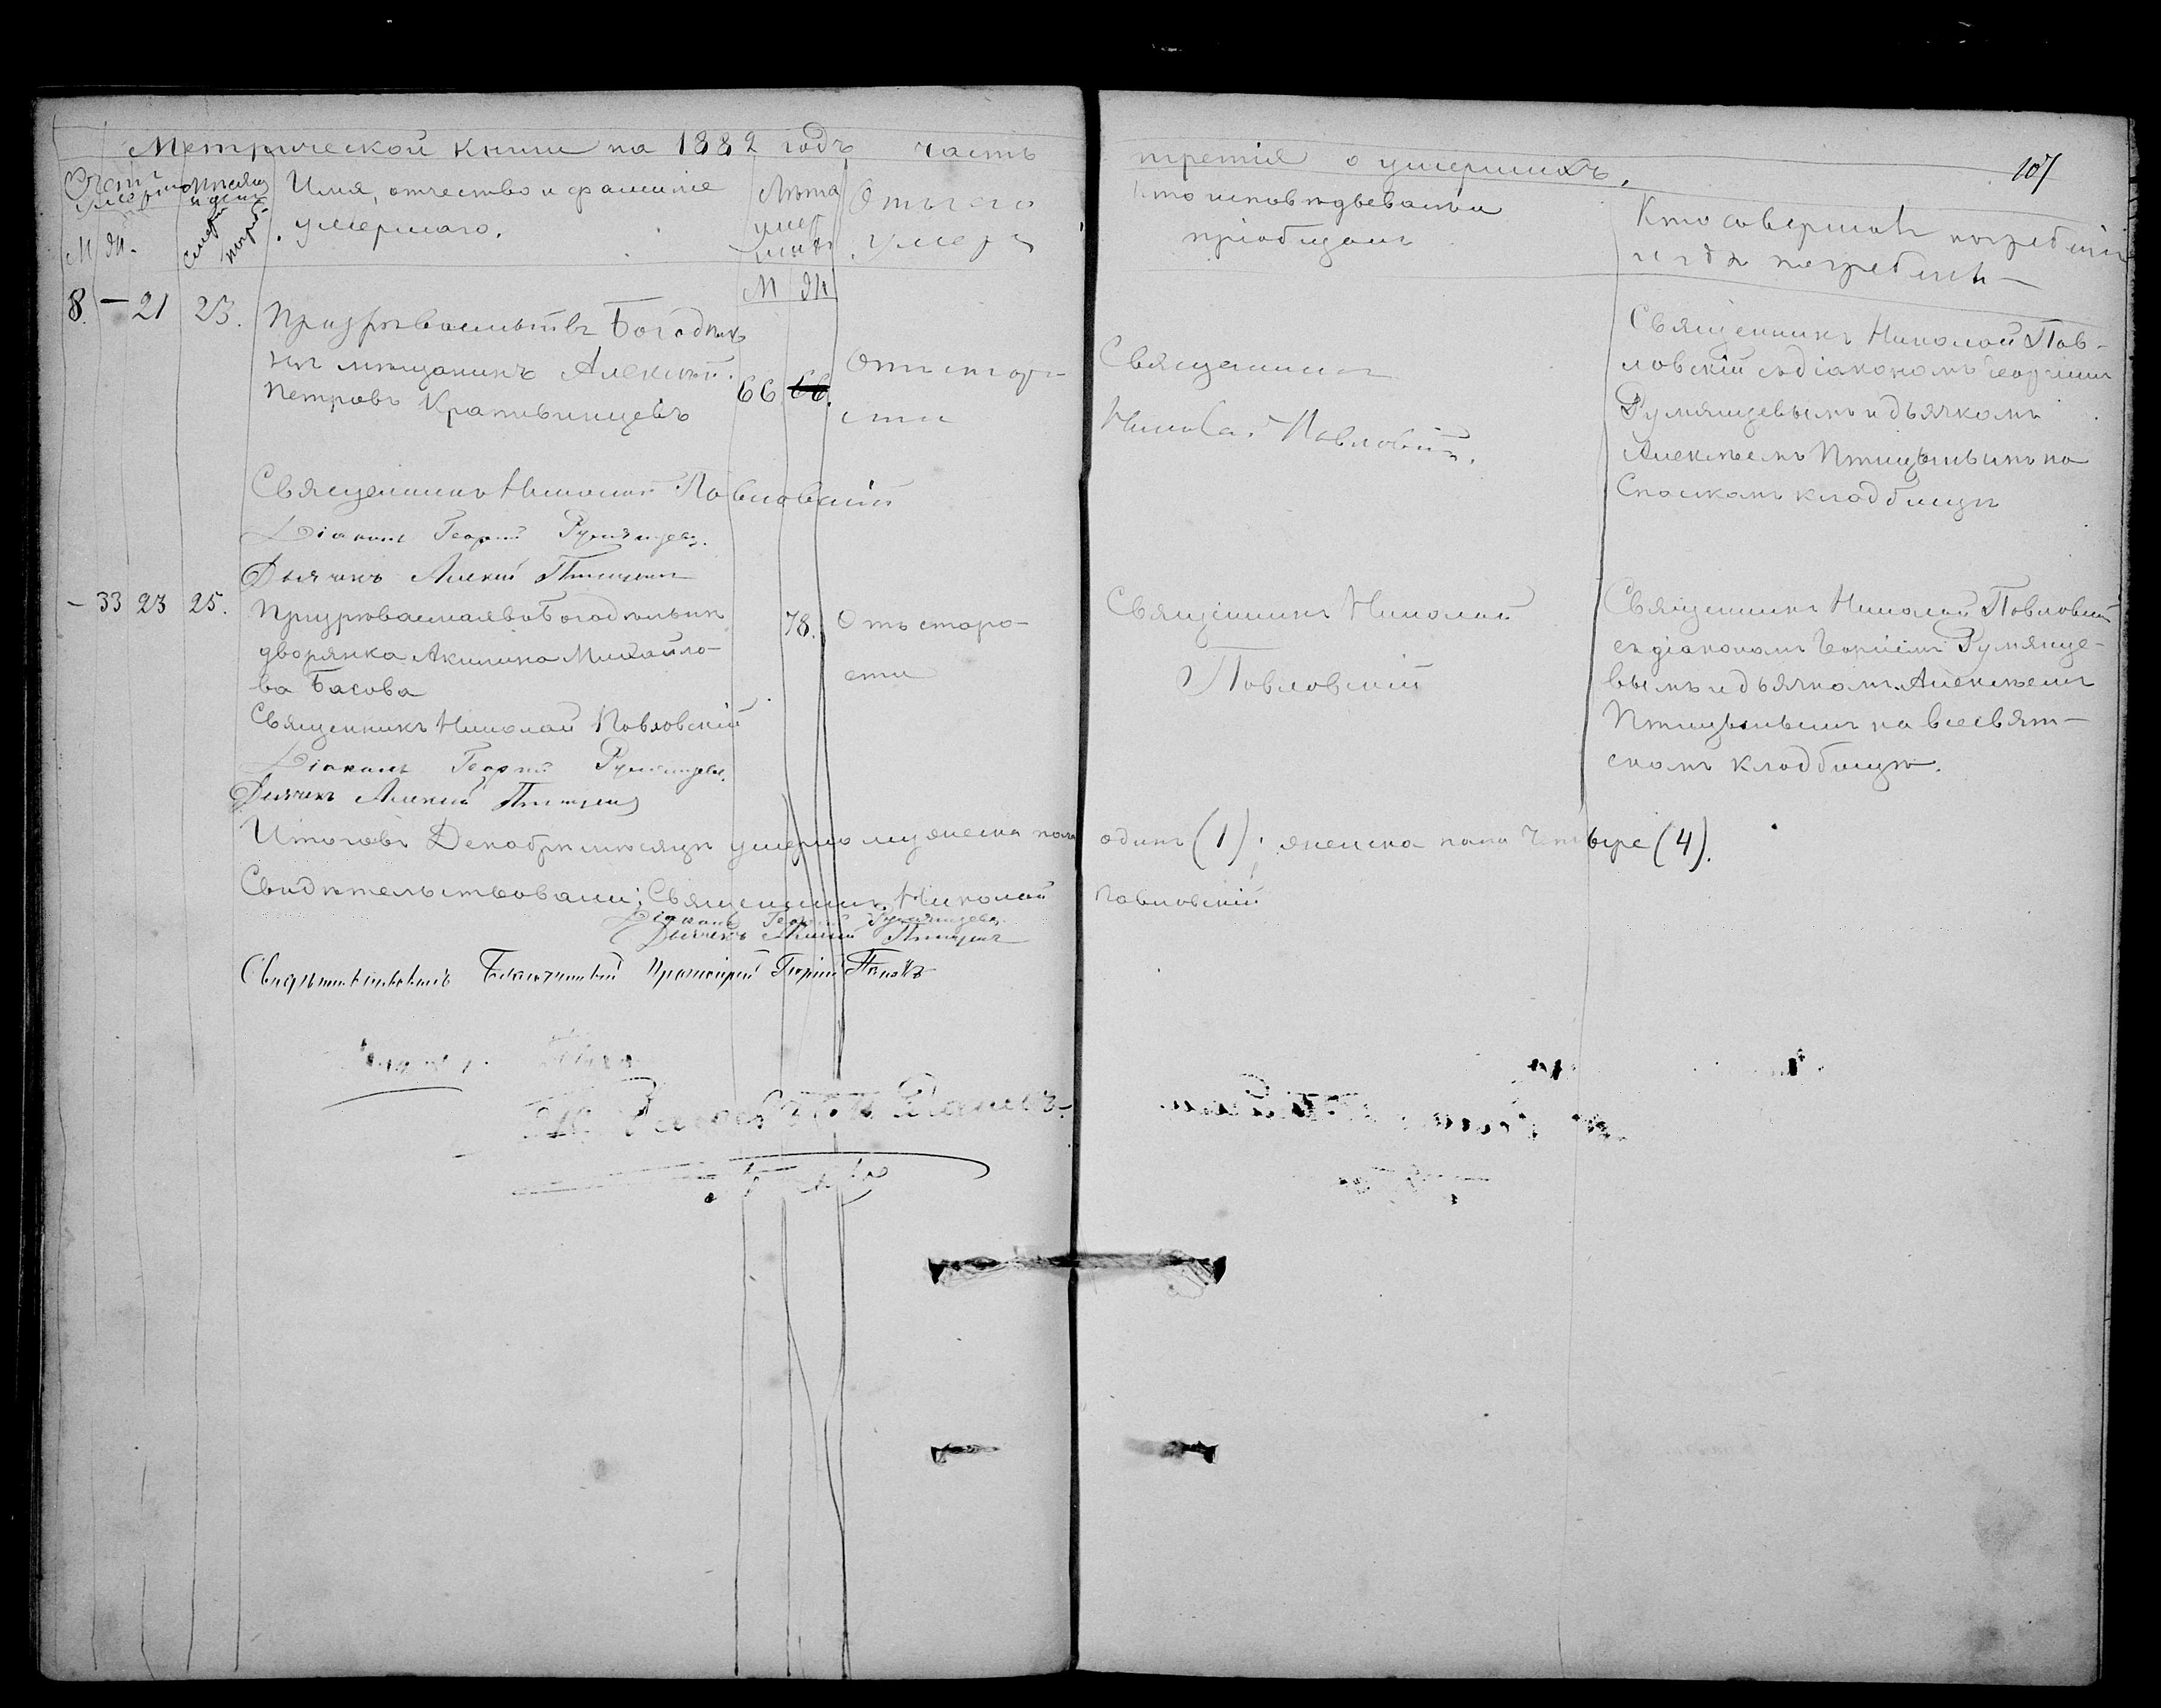 Метрической книги на 1882 годъ часть третія о умершихъ. 107
Счетъ умершихъ
М Ж.
Мѣсяцъ и день
смер погреб.
Имя, отчество и фамилія
умершаго.
Лѣта
умер
шихъ
М Ж
Отъ чего
умеръ
Кто исповѣдывалъ и
пріобщалъ
Кто совершалъ погребеніе
и гдѣ погребенъ
8. — 21 23.
Призрѣваемый въ Богадѣль
нѣ мѣщанинъ Алексѣй
Петровъ Крапивинцевъ
66 66.
Отъ старо
сти
Священникъ
Николай Павловскій.
Священникъ Николай Пав-
ловскій съ діакономъ Георгіемъ
Румянцевымъ и дьячкомъ
Алексѣемъ Птицынымъ на
Спаскомъ кладбищѣ
Священникъ Николай Павловскій
Діаконъ Георгій Румянцевъ.
Дьячекъ Алексій Птицынъ
— 33 23 25.
Призрѣваемая въ Богадѣльнѣ
дворянка Акилина Михайло-
ва Басова
78.
Отъ старо-
сти
Священникъ Николай
Павловскій
Священникъ Николай Павловскій
съ діакономъ Георгіемъ Румянце-
вымъ и дьячкомъ Алексѣемъ
Птицынымъ на Всесвят-
скомъ кладбищѣ.
Священникъ Николай Павловскій
Діаконъ Георгій Румянцевъ.
Дьячекъ Алексій Птицынъ
Итого въ Декабрѣ мѣсяцѣ умерло мужеска пола одинъ (1); женска пола четыре (4).
Свидѣтельствовали: Священникъ Николай Павловскій
Діаконъ Георгій Румянцевъ
Дьячекъ Алексій Птицынъ
Свидѣтельствовалъ Благочинный Протоіерей Георгій Поповъ